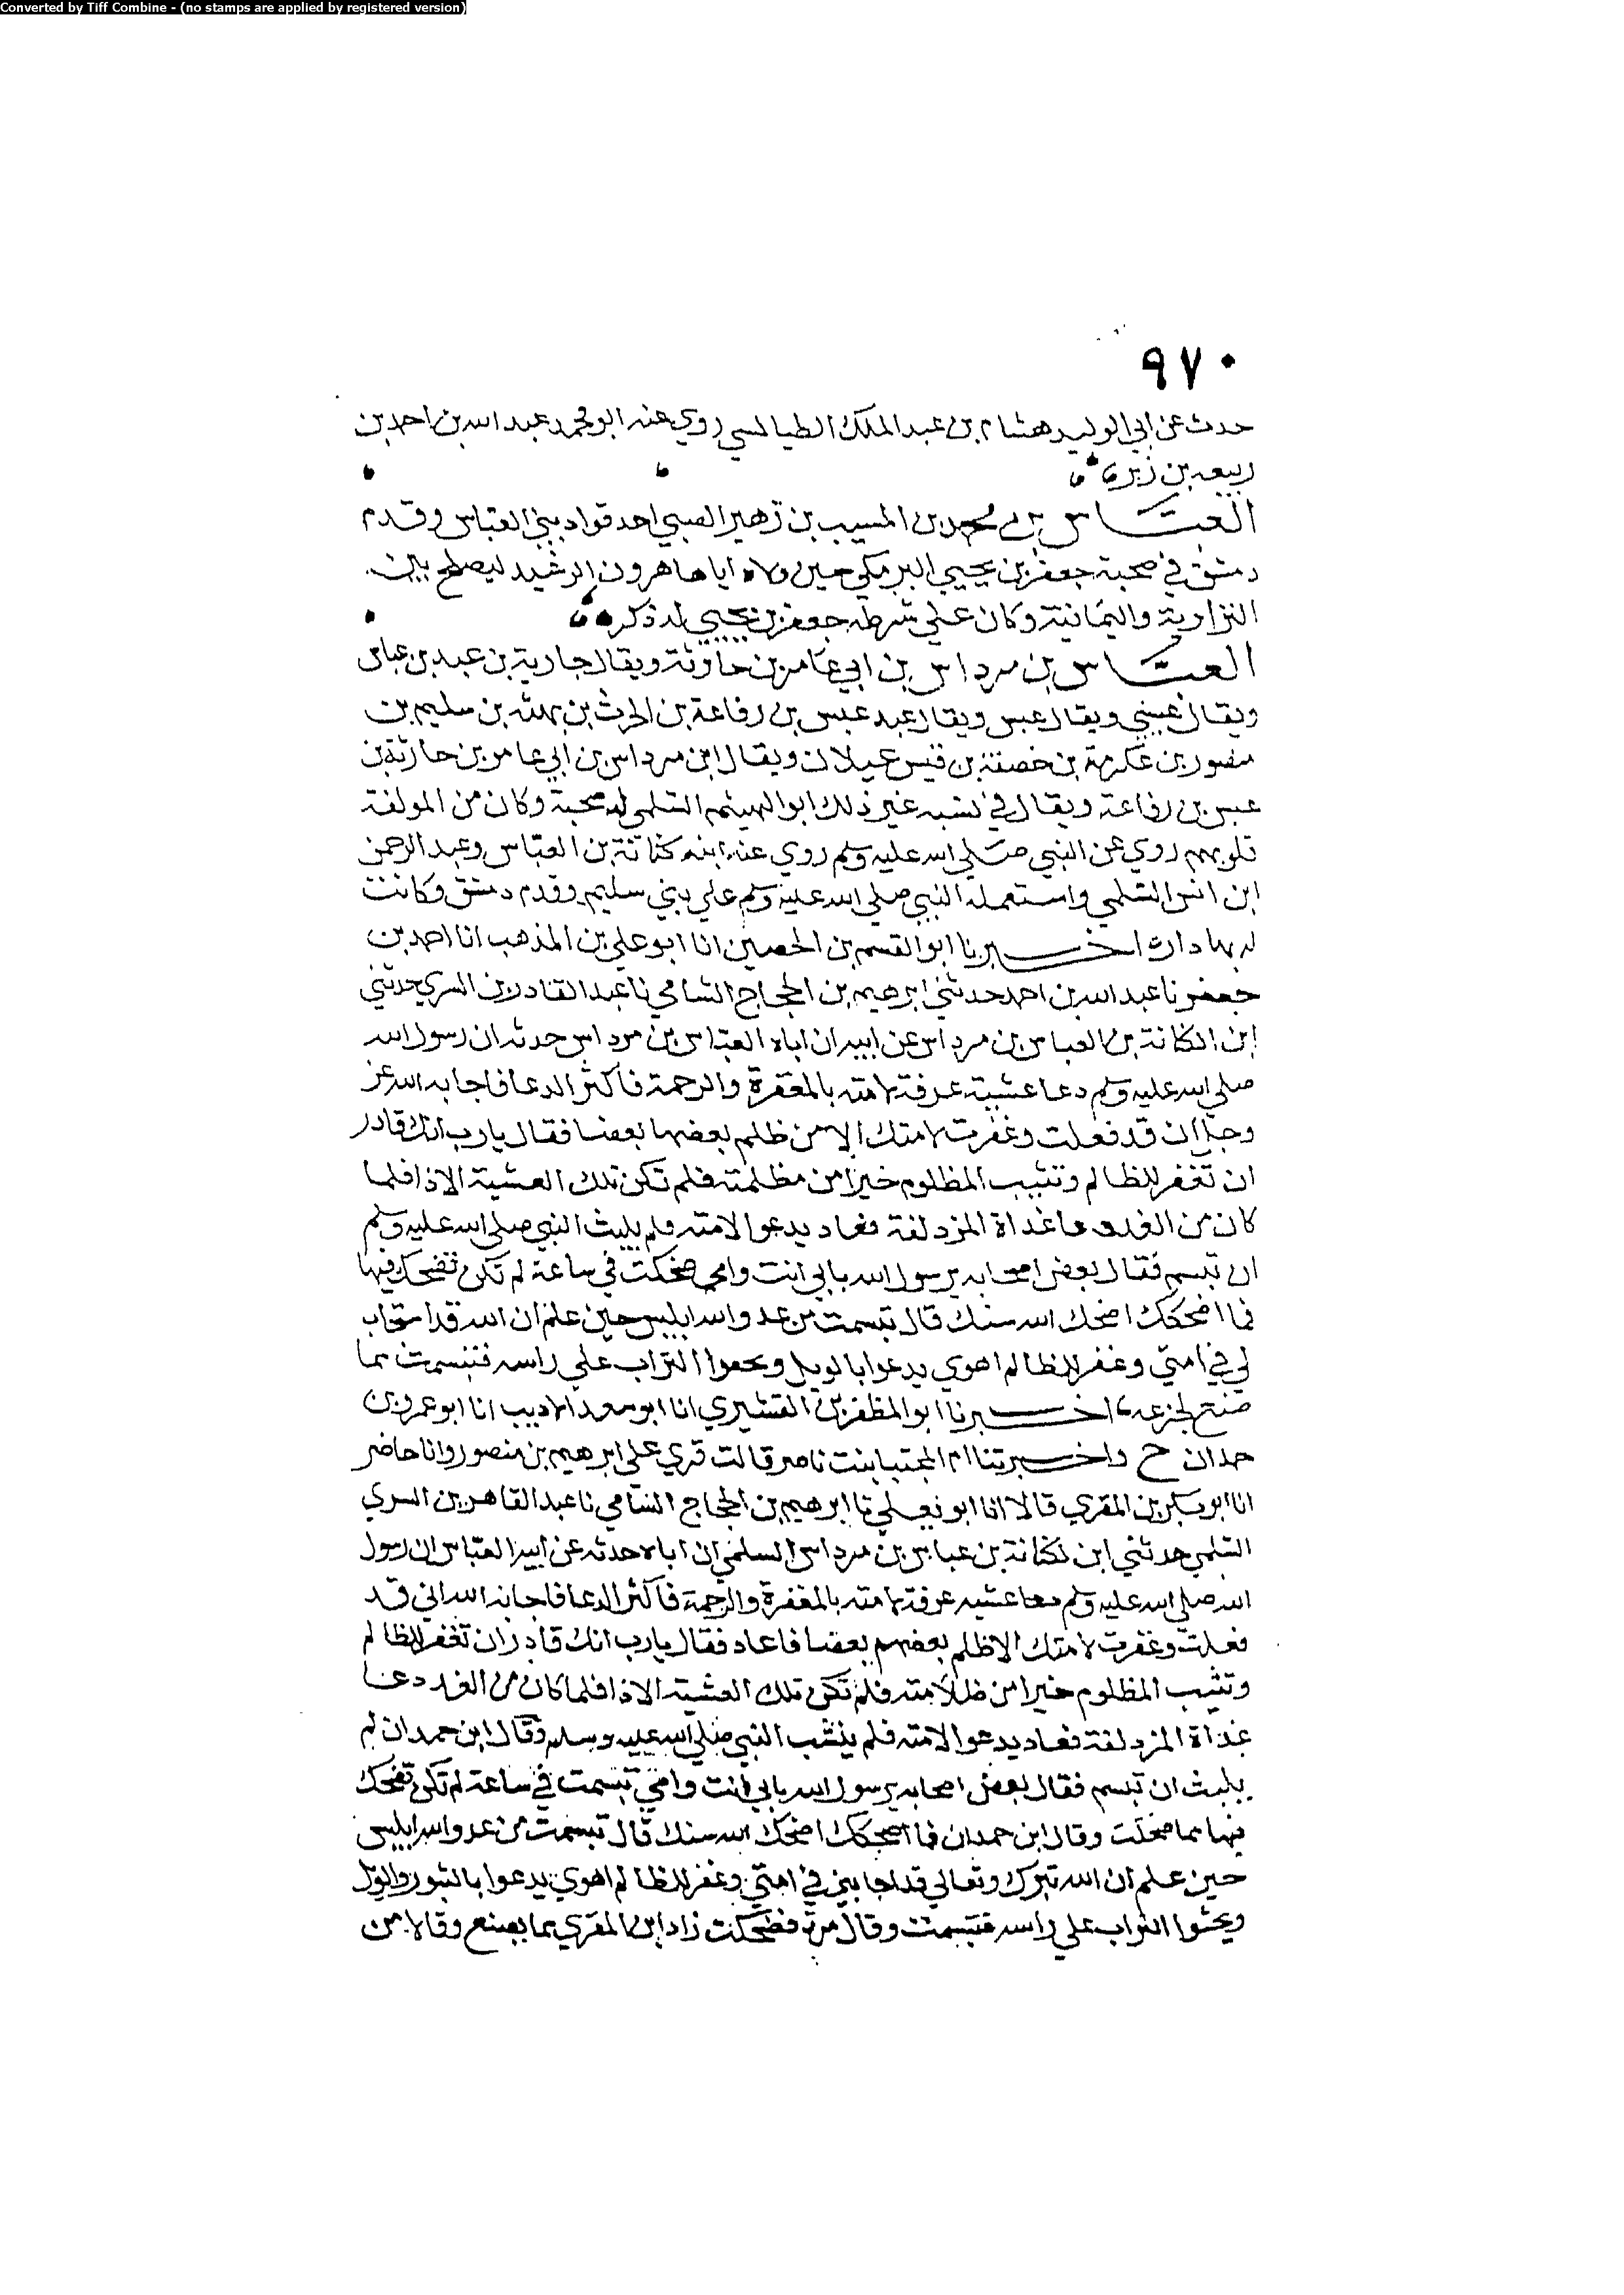 Converted by Tiff Combine - (no stamps are applied by registered version)
٩٧٠
حدث عن ابي الوليد هشام بن عبد الملك الطيالسي روي عنه ابو محمد عبد الله بن احمد بن
ربيعه بن زبر
العباس بن محمد بن المسيب بن زهير الضبي احد قواد بني العباس وقدم
دمشق في صحبة جعفر بن يحيي البرمكي حين ولاه اياها هرون الرشيد ليصلح بين
النزارية واليمانية وكان علي شرطه جعفر بن يحيي له ذكر
العباس بن مرداس بن ابي عامر بن حارثة ويقال جارية بن عبد بن عباس
ويقال عيسي ويقال عبس ويقال عبد عبس بن رفاعة بن الحرث بن بهثه بن سليم بن
منصور بن عكرمة بن خصفة بن قيس عيلان ويقال ابن مرداس بن ابي عامر بن حارثة بن
عبس بن رفاعة ويقال في نسبه غير ذلك ابو الهيثم السلمي له صحبة وكان من المولفة
قلوبهم روي عن النبي صلي الله عليه وسلم روي عنه ابنه كنانة بن العباس وعبد الرحمن
ابن انس السلمي واستعمله النبي صلي الله عليه وسلم علي بني سليم وقدم دمشق وكانت
له بها دار اخبرنا ابو القسم بن الحصين انا ابو علي بن المذهب انا احمد بن
جعفر نا عبد الله بن احمد حدثني ابرهيم بن الحجاج الشامي نا عبد القادر بن السري حدثني
ابن الكنانة بن العباس بن مرداس عن ابيه ان اباه العباس بن مرداس حدثه ان رسول الله
صلي الله عليه وسلم دعا عشية عرفة لامته بالمغفرة والرحمة فاكثر الدعا فاجابه الله عز
وجل ان قد فعلت وغفرت لامتك الا من ظلم بعضها بعضا فقال يارب انك قادر
ان تغفر للظالم وتثيب المظلوم خيرا من مظلمته فلم تكن تلك العشية الا ذا فلما
كان من الغد دعا غداة المزدلفة فعاد يدعوا لامته فلم يلبث النبي صلي الله عليه وسلم
ان تبسم فقال بعض اصحابه يرسول الله بابي انت وامي ضحكت في ساعة لم تكن تضحك فيها
فما اضحكك اضحك الله سنك قال تبسمت من عدو الله ابليس حين علم ان الله قد استجاب
لي في امتي وغفر للظالم اهوي يدعوا بالويل ويحثوا التراب علي راسه فتبسمت مما
صنع لجزعه اخبرنا ابو المظفر بن القشيري انا ابو سعد الاديب انا ابو عمرو بن
حمدان ح واخبرتنا ام المجتبا بنت ناصر قالت قري علي ابرهيم بن منصور وانا حاضر
انا ابو بكر بن المقري قالا انا ابو يعلي نا ابرهيم بن الحجاج الشامي نا عبد القاهر بن السري
السلمي حدثني ابن لكنانة بن عباس بن مرداس السلمي ان اباه حدثه عن ابيه العباس ان رسول
الله صلي الله عليه وسلم دعا عشيه عرفة لامته بالمغفرة والرحمة فاكثر الدعا فاجابه الله اني قد
فعلت وغفرت لامتك الا ظلم بعضهم بعضا فاعاد فقال يارب انك قادر ان تغفر للظالم
وتثيب المظلوم خيرا من ظلامته فلم تكن تلك العشية الا ذا فلما كان من الغد دعا
غداة المزدلفة فعاد يدعوا لامته فلم ينشب النبي صلي الله عليه وسلم وقال ابن حمدان لم
يلبث ان تبسم فقال بعض اصحابه يرسول الله بابي انت وامي تبسمت في ساعة لم تكن تضحك
فيها مما ضحكت وقال ابن حمدان فما اضحكك اضحك الله سنك قال تبسمت من عدو الله ابليس
حين علم ان الله تبرك وتعالي قد اجابني في امتي وغفر للظالم اهوي يدعوا بالثبور والويل
ويحثوا التراب علي راسه فتبسمت وقال مرة فضحكت زاد ابن المقري مما يصنع وقالا من